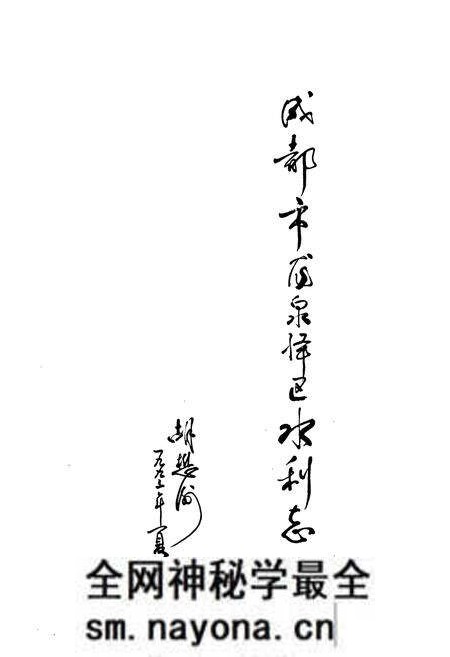 成都市龙泉驿区水利志
胡懋洲
一九九二年夏
全网神秘学最全
sm.nayona.cn